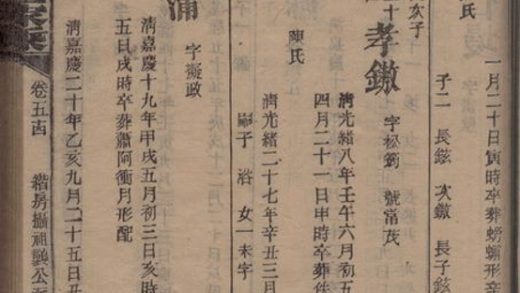 一月二十日寅時卒葬螃蟹形辛
子二 長鉉 次鏾 長子鉉
氏
次子
十
孝鏾 字松筠 號富茂
清光緒八年壬午六月初五
四月二十一日申時卒葬
陳氏
清光緒二十七年辛丑三月
嗣子 浴 女一未字
浦 字擬政
清嘉慶十九年甲戌五月初三日亥時
五日戌時卒葬蕭阿衝月形配
清嘉慶二十年乙亥九月二十五日丑
卷五 楷房攝祖巽公